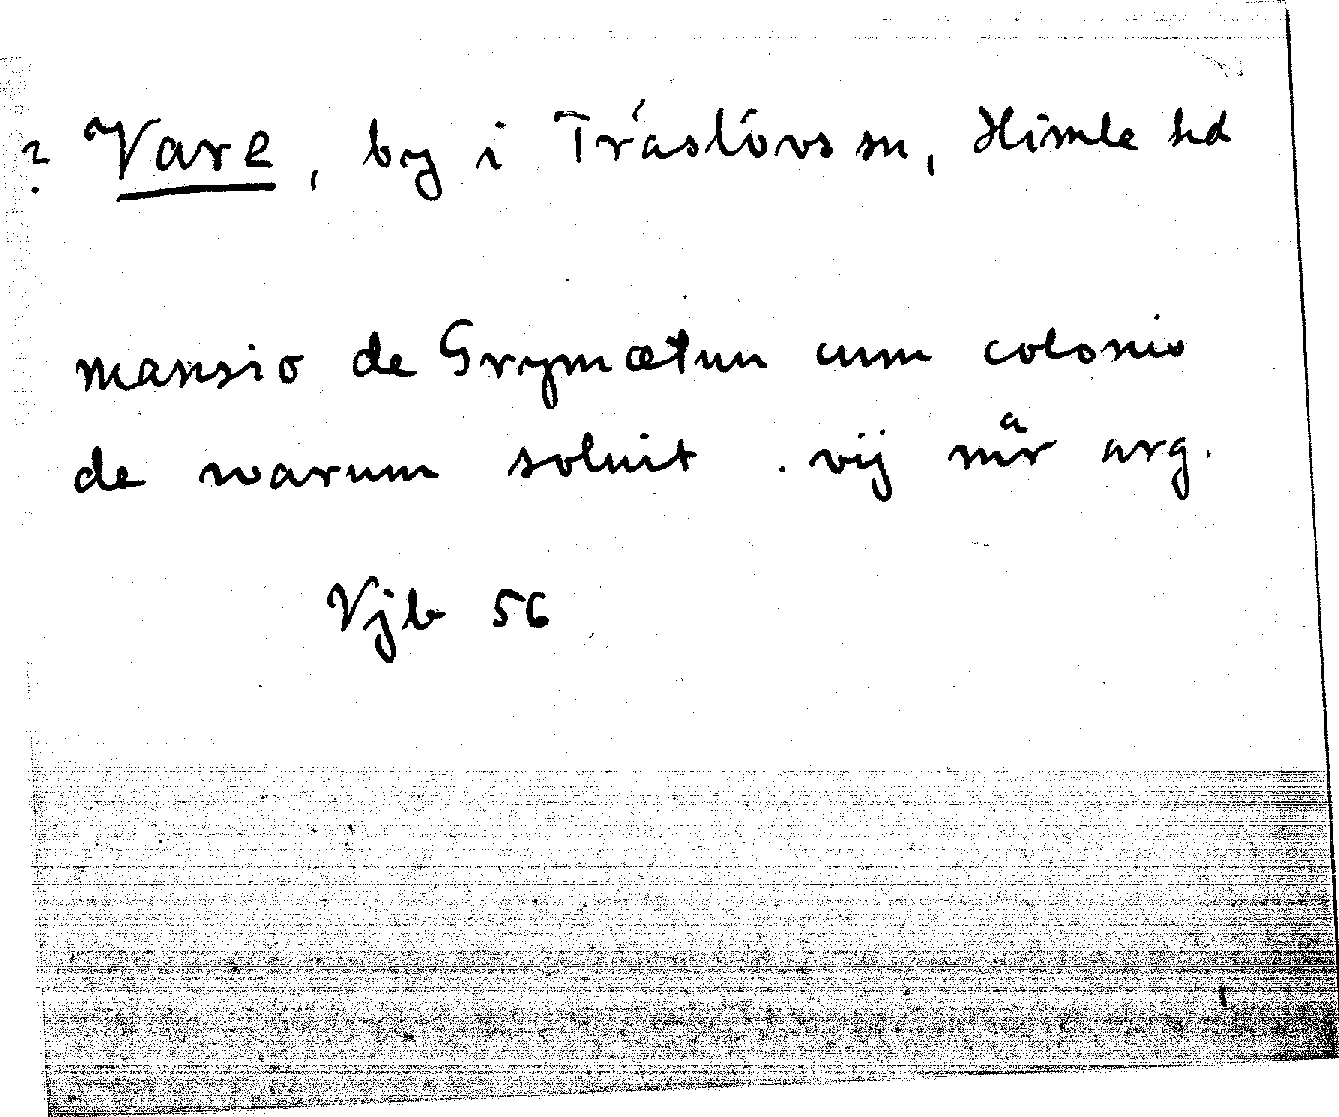 ? Vare, by i Träslövs sn, Himle hd
mansio de Grymætun cum colonis
de warum soluit . vij mᵃr arg.
Vjb 56